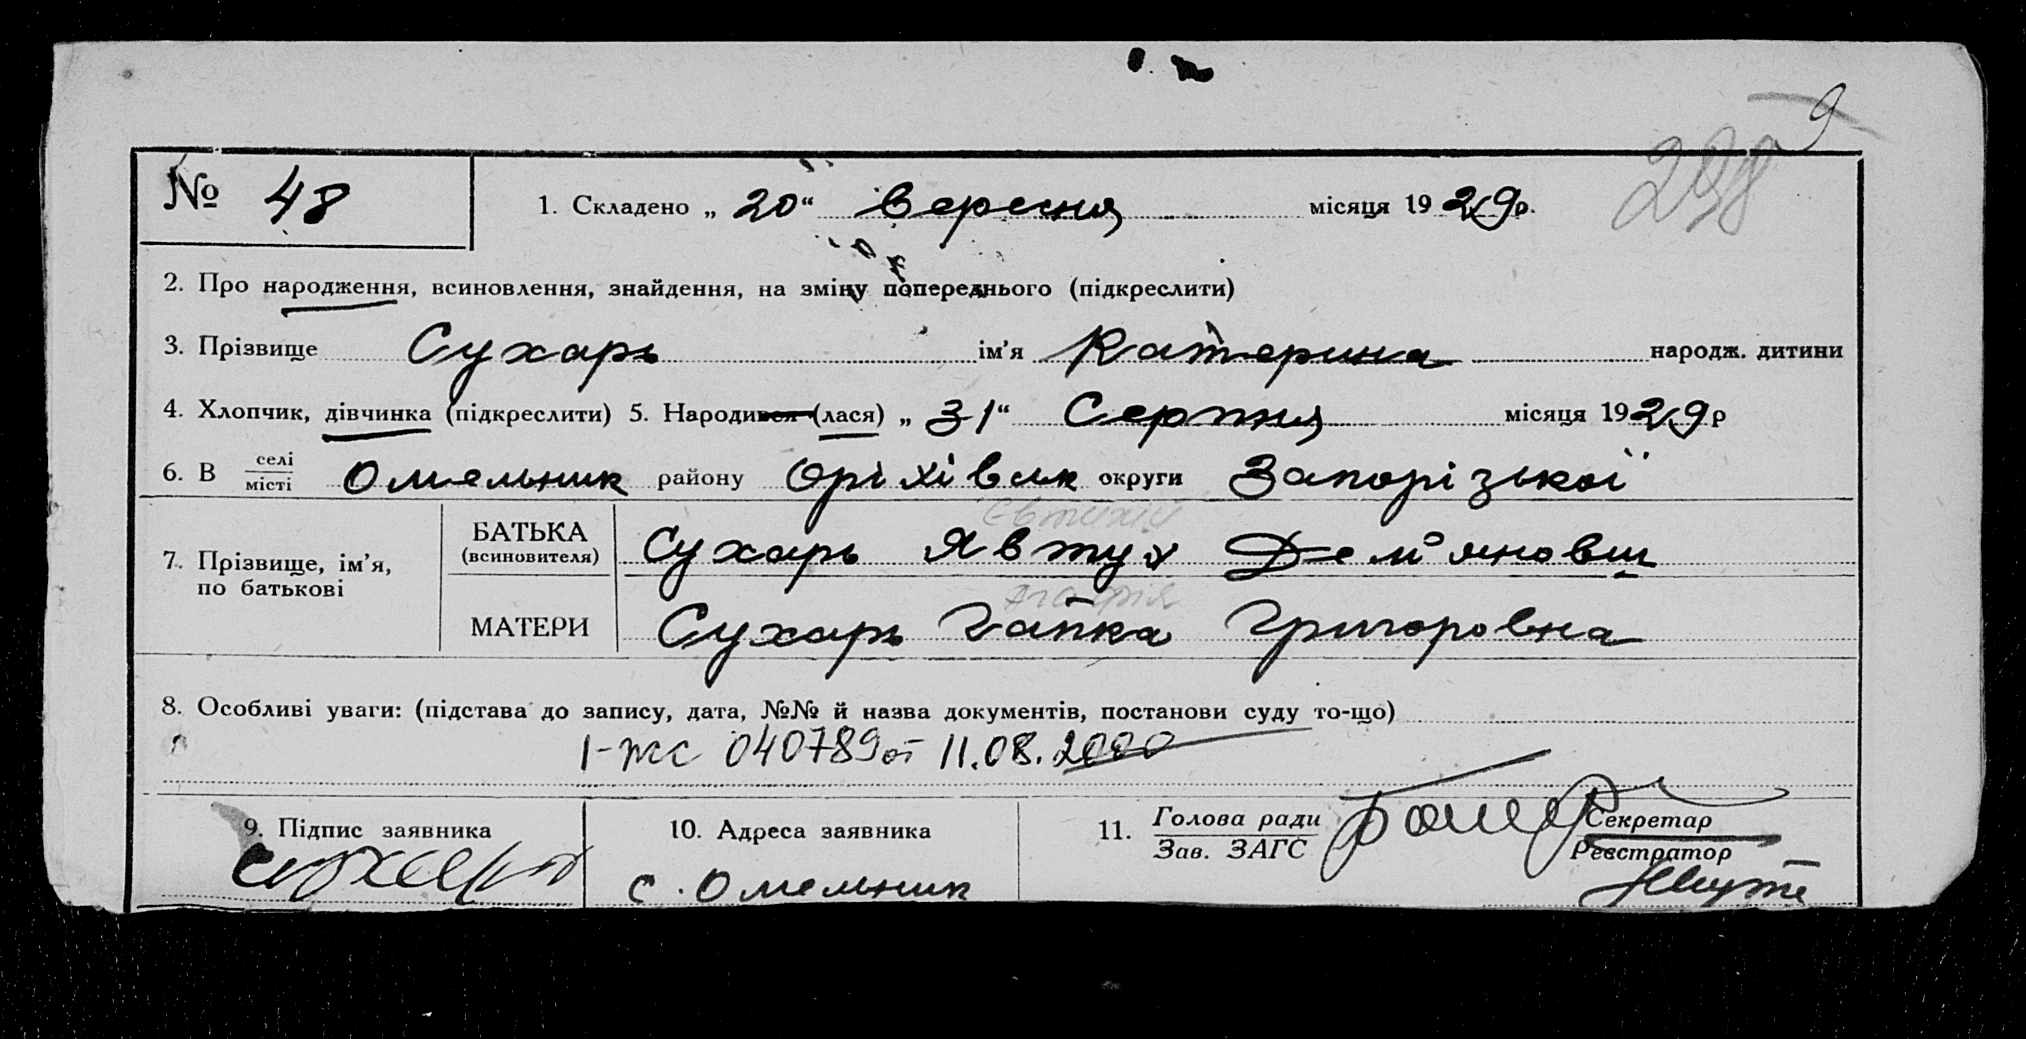 298 9
№ 48 1. Складено „ 20 “ вересня місяця 1929 р.
2. Про народження, всиновлення, знайдення, на зміну попереднього (підкреслити)
3. Прізвище Сухарь ім’я Катерина народж. дитини
4. Хлопчик, дівчинка (підкреслити) 5. Народився (лася) „ 31 “ Серпня місяця 1929 р
6. В селі місті Омельник району Оріхівськ округи Запорізької
Євтихій
7. Прізвище, ім’я, по батькові БАТЬКА (всиновителя) Сухарь Явтух Дем’янович
Агафія
МАТЕРИ Сухарь Гапка Григоровна
8. Особливі уваги: (підстава до запису, дата, №№ й назва документів, постанови суду то-що)
I-ЖС 040789 от 11.08.2000
9. Підпис заявника 10. Адреса заявника 11. Голова ради Секретар
Зав. ЗАГС Реєстратор
с. Омельник